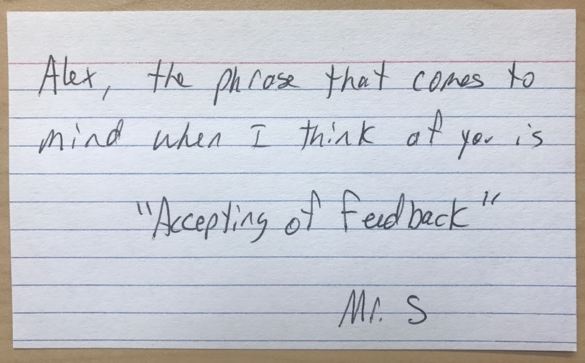 Alex, the phrase that comes to
mind when I think of you is
"Accepting of feedback"
Mr. S